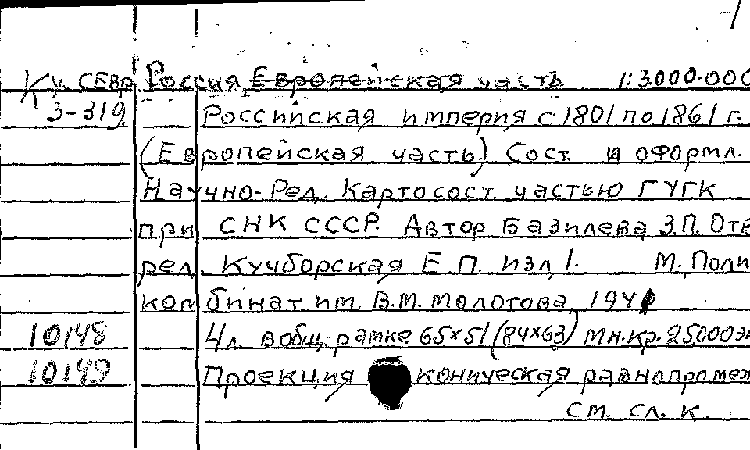 К у. СЕВР Россия, Европейская часть 1:3000.000
3-319. Российская империя с 1801 по 1861 г.
(Европейская часть) Сост. и оформл.
Научно-Ред. Картосост частью ГУГК
при СНК СССР. Автор Базилева З.П. Отв
ред. Кучборская Е.П. изд 1. М. Поли
комбинат им. В.М. Молотова, 194
10148 4 л. в общ. рамке 65×51 (84×63) мн.кр. 25000 эк
10149 Проекция коническая равнопромеж
см. сл. к.